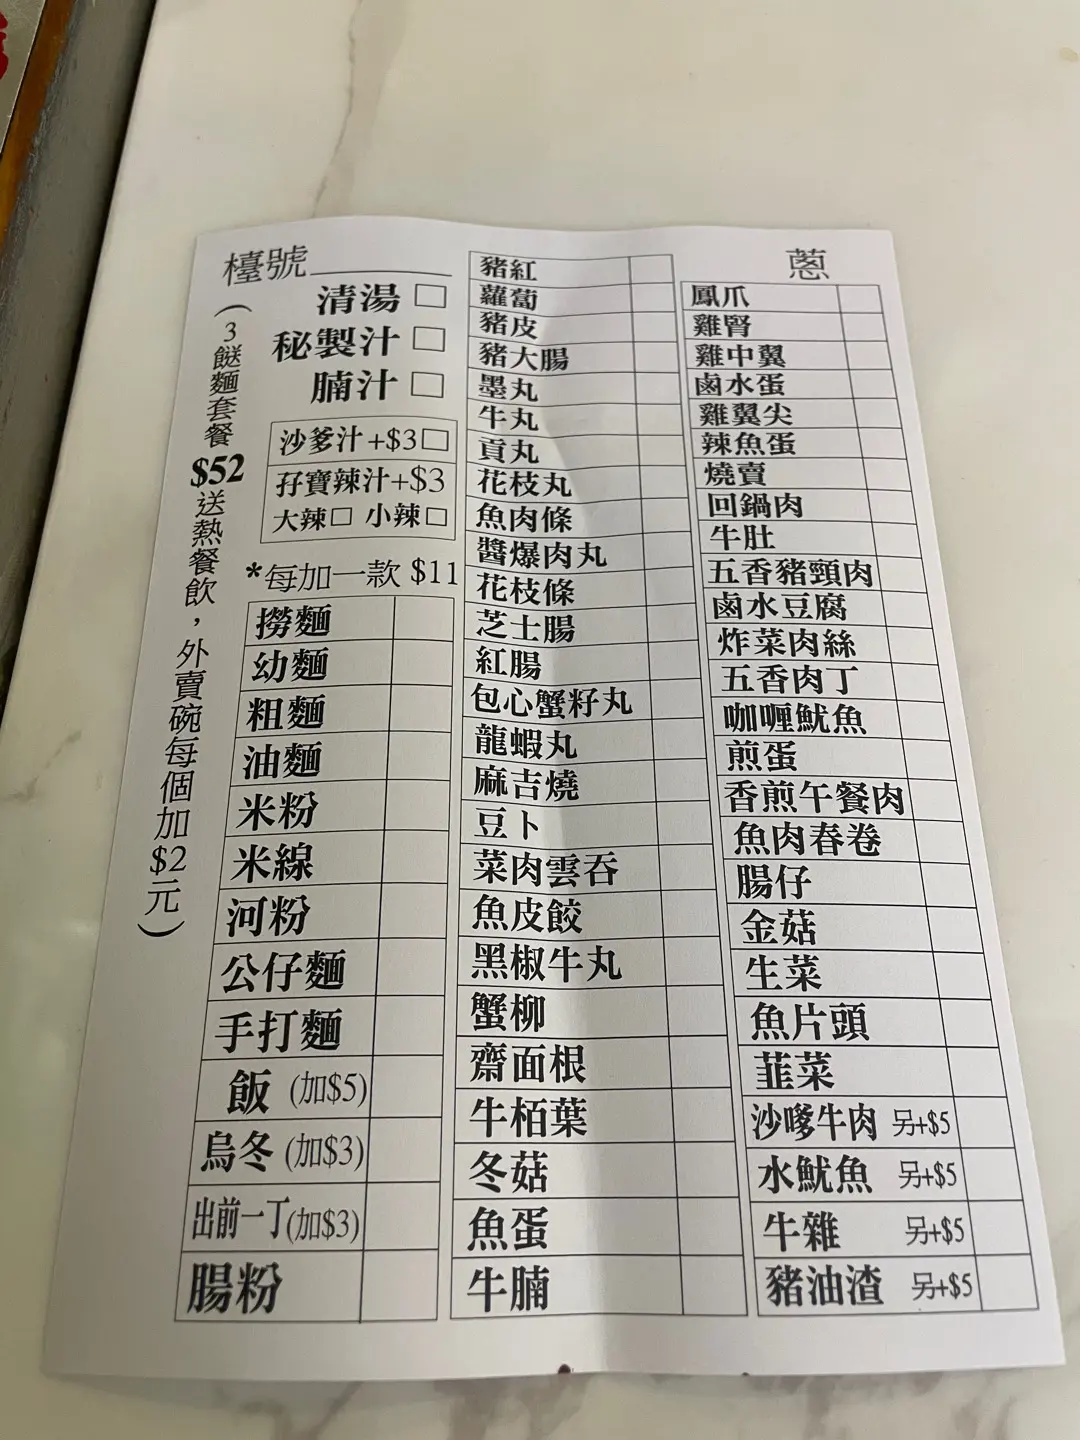 檯號
(3餸麵套餐$52送熱餐飲，外賣碗每個加$2元)
清湯 □
秘製汁 □
腩汁 □
沙爹汁+$3□
孖寶辣汁+$3
大辣□ 小辣□
*每加一款 $11
撈麵
幼麵
粗麵
油麵
米粉
米線
河粉
公仔麵
手打麵
飯 (加$5)
烏冬 (加$3)
出前一丁(加$3)
腸粉
豬紅
蘿蔔
豬皮
豬大腸
墨丸
牛丸
貢丸
花枝丸
魚肉條
醬爆肉丸
花枝條
芝士腸
紅腸
包心蟹籽丸
龍蝦丸
麻吉燒
豆卜
菜肉雲吞
魚皮餃
黑椒牛丸
蟹柳
齋面根
牛栢葉
冬菇
魚蛋
牛腩
蔥
鳳爪
雞腎
雞中翼
鹵水蛋
雞翼尖
辣魚蛋
燒賣
回鍋肉
牛肚
五香豬頸肉
鹵水豆腐
炸菜肉絲
五香肉丁
咖喱魷魚
煎蛋
香煎午餐肉
魚肉春卷
腸仔
金菇
生菜
魚片頭
韮菜
沙嗲牛肉 另+$5
水魷魚 另+$5
牛雜 另+$5
豬油渣 另+$5